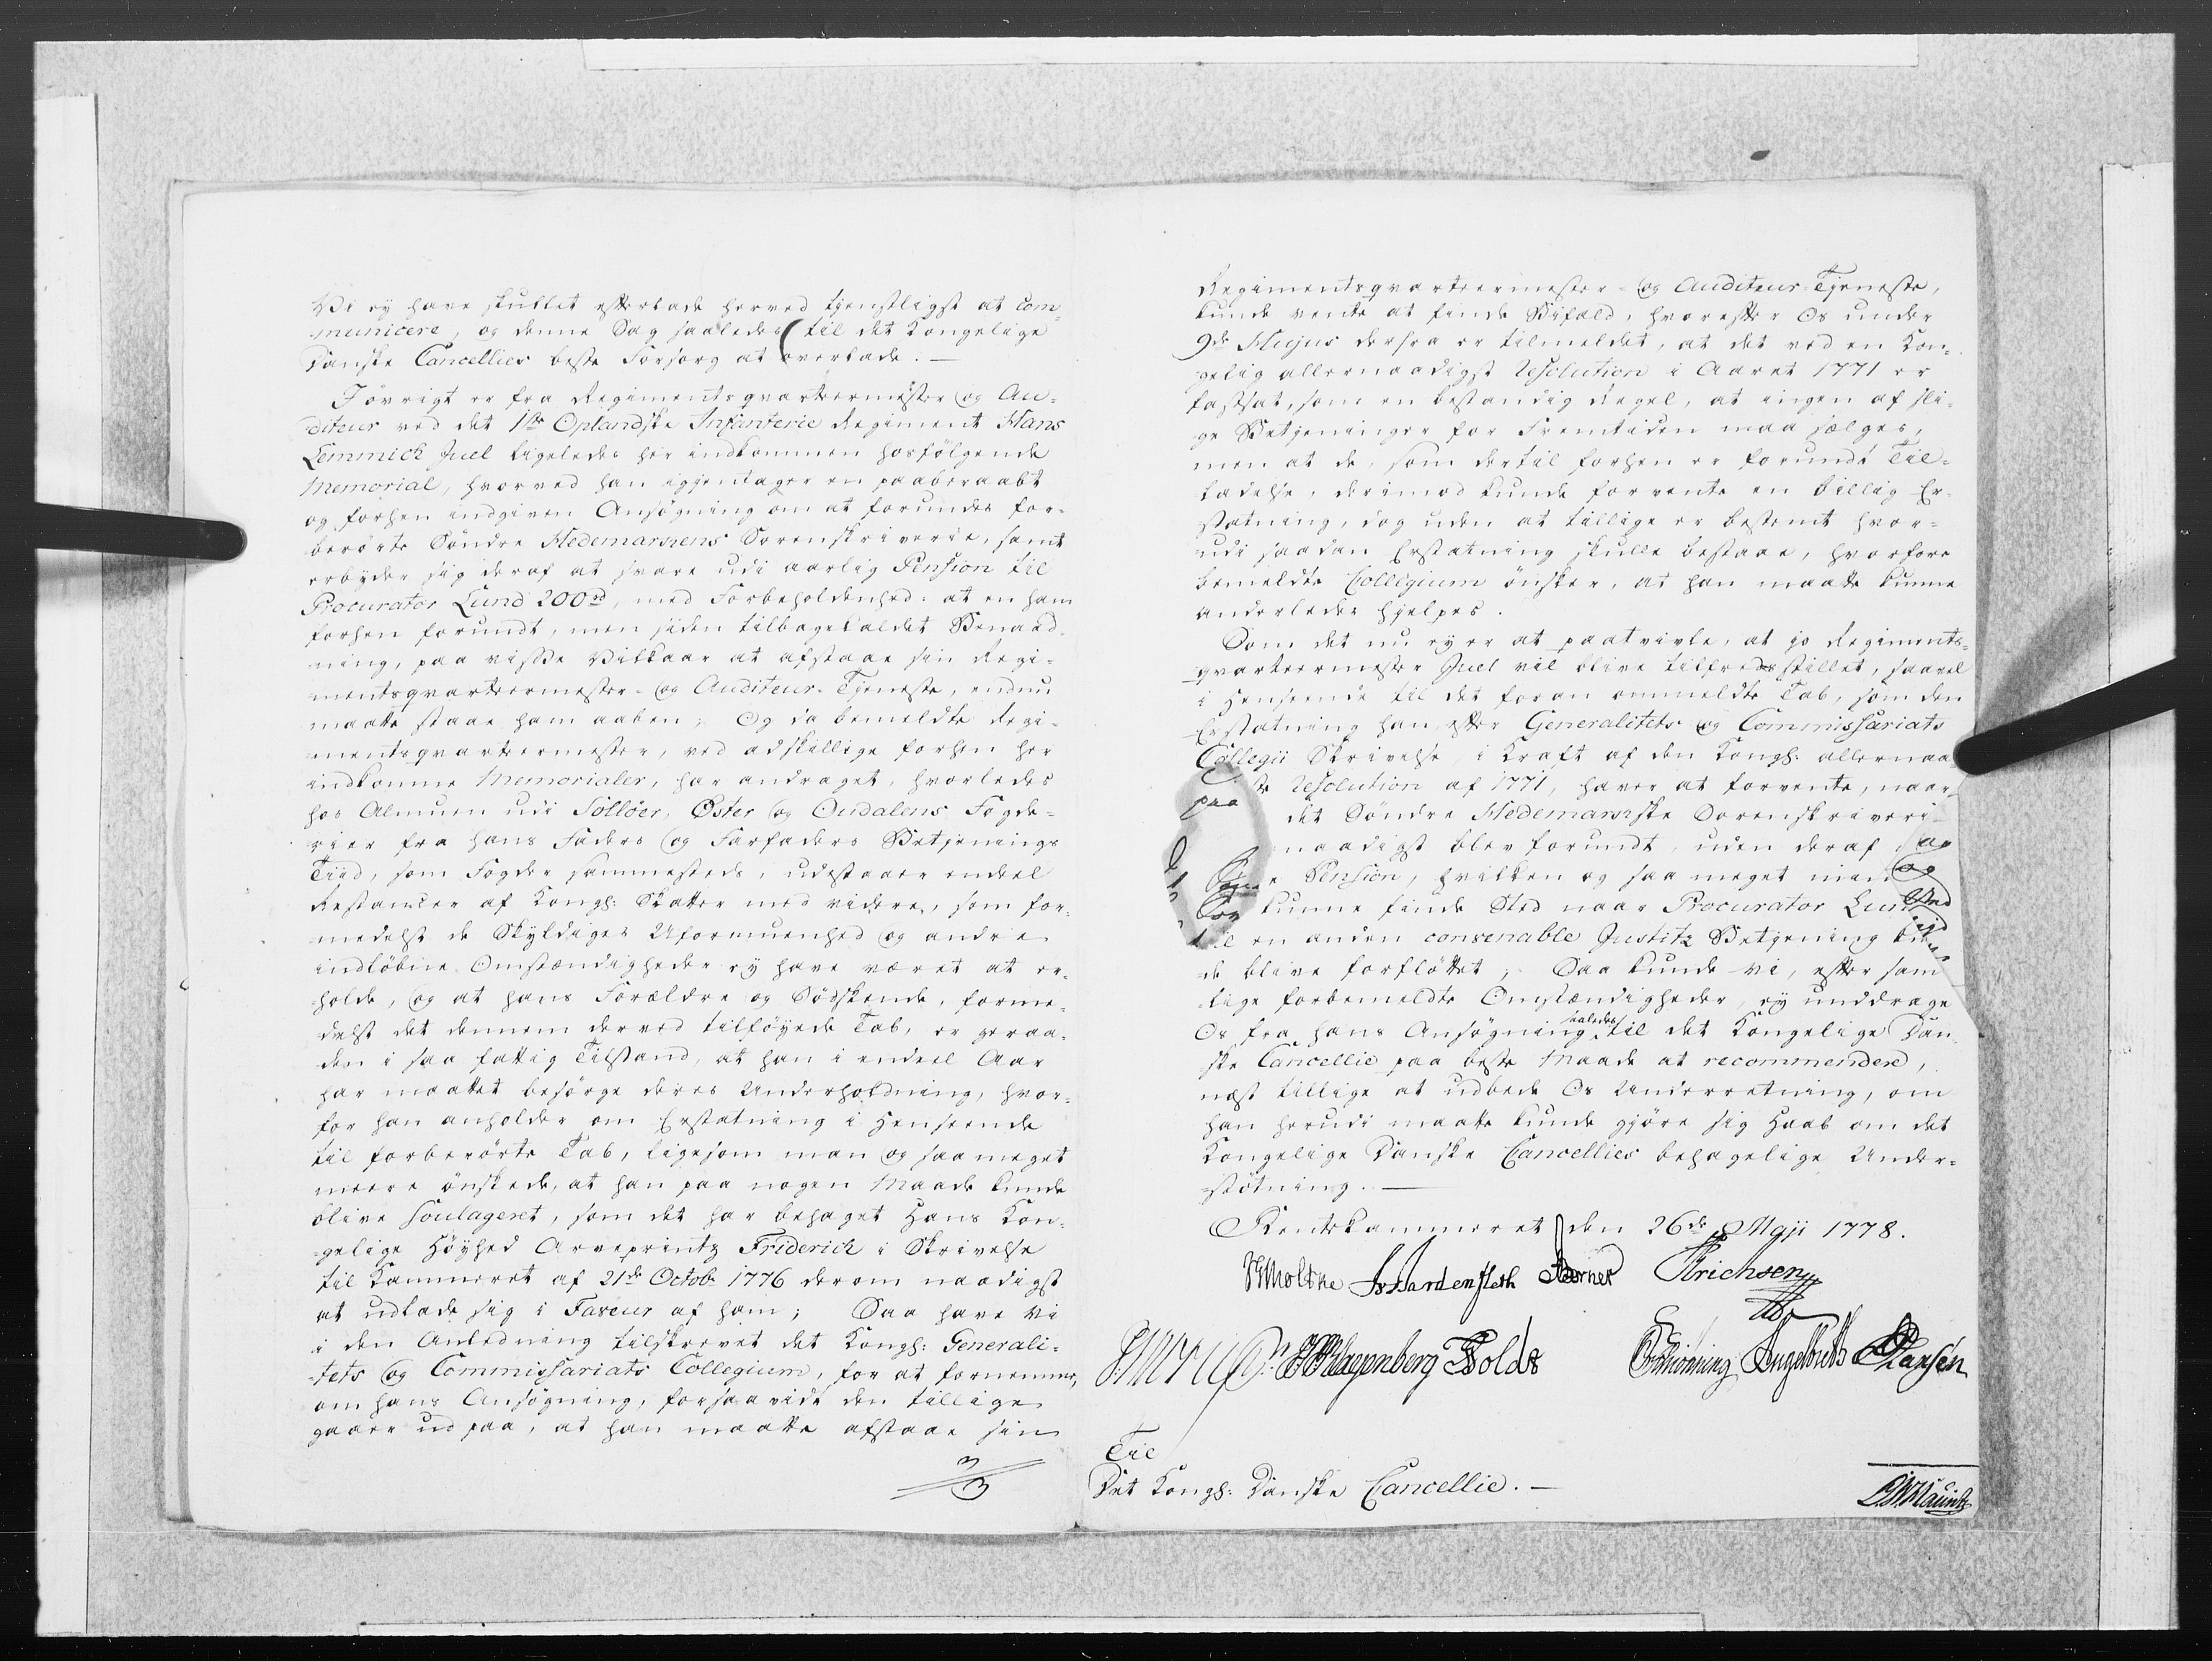 Vi ey have skullet efterlade herved tienstligst at Com-
municere, og denne Sag saaledes til det Kongelige
Danske Cancellies beste Forsorg at overlade. —
Iövrigt er fra Regimentsqvarteermester og Au-
diteur ved det 1ste Oplandske Infanterie Regiment Hans
Lemmich Juel ligeledes her indkommen hosfölgende
Memorial, hvorved han igjentager en paaberaabt
og forhen indgiven Ansögning om at forundes for-
berörte Söndre Hedemarkens Sorenskriverie, samt
erbyder sig deraf at svare udi aarlig Pension til
Procurator Lund 200rd, med Forbeholdenhed: at en ham
forhen forundt, men siden tilbagekaldet Benaad-
ning, paa visse Vilkaar at afstaae sin Regi-
mentsqvarteermester- og Auditeur-Tjeneste, endnu
maatte staae ham aaben; Og da bemeldte Regi-
mentsqvarteermester, ved adskillige forhen her
indkomne Memorialer, har andraget, hvorledes
hos Almuen udi Sollöer, Öster og Oudalens Fogde-
rier fra hans Faders og Farfaders Betjenings
Tiid, som Fogder sammesteds, udestaaer endeel
Restancer af Kongl: Skatter med videre, som for-
medelst de Skyldiges Uformuenhed og andre
indlöbne Omstændigheder ey have været at er-
holde, og at hans Forældre og Södskende, forme-
delst det dennem derved tilföyede Tab, er geraa-
den i saa fattig Tilstand, at han i endeel Aar
har maattet besörge deres Underholdning, hvor-
for han anholder om Erstatning i Henseende
til forberörte Tab, ligesom man og saa meget
meere önskede, at han paa nogen Maade kunde
blive soulageret, som det har behaget Hans Kon-
gelige Höyhed Arveprintz Friderich i Skrivelse
til Kammeret af 21de Octobr 1776 derom naadigst
at udlade sig i Faveur af ham; Saa have Vi
i den Anledning tilskrevet det Kongl: Generali-
tets og Commissariats Collegium, for at fornemme,
om hans Ansögning, forsaavidt den tillige
gaaer ud paa, at han maatte afstaae sin
Regimentsqvarteermester- og Auditeur-Tjeneste,
kunde vente at finde Bifald, hvorefter Os under
9de Hujus derfra er tilmeldet, at det ved en Kon-
gelig allernaadigst Resolution i Aaret 1771 er
fastsat, som en bestandig Regel, at ingen af sli-
ge Betjeninger for Fremtiden maa sælges,
men at de, som dertil forhen er forundt Til-
ladelse, derimod kunde forvente en billig Er-
statning, dog uden at tillige er bestemt hvor-
udi saadan Erstatning skulle bestaae, hvorfore
bemeldte Collegium önsker, at han maatte kunne
anderledes hjelpes.
Som det nu ey er at paatvivle, at jo Regiments-
qvarteermester Juel vil blive tilfredsstillet, saavel
i Henseende til det foran ommeldte Tab, som den
Erstatning han efter Generalitets og Commissariats
Collegii Skrivelse, i Kraft af den Kongl: allernaa
Resolution af 1771, haver at forvente, naar
paa det Söndre Hedemarkske Sorenskriveri
naadigst blev forundt, uden deraf
Pension, hvilken og saa meget
kunne finde Sted naar Procurator Lund
til en anden convenable Justitz Betjening
de blive forflöttet; Saa kunde vi, efter sam
lige forbemeldte Omstændigheder, ey unddrage
Os fra hans Ansögning saaledes til det Kongelige Dan-
ske Cancellie paa beste Maade at recommendere,
næst tillige at udbede Os Underretning, om
han herudi maatte kunde gjöre sig Haab om det
Kongelige Danske Cancellies behagelige Under-
stötning. —
Rentekammeret den 26de Maji 1778.
Moltke Hardenfleth Berner Erichsen
Wagenberg Holdt Schiönning Engelbreth Hansen
Til
Det Kongl: Danske Cancellie. —